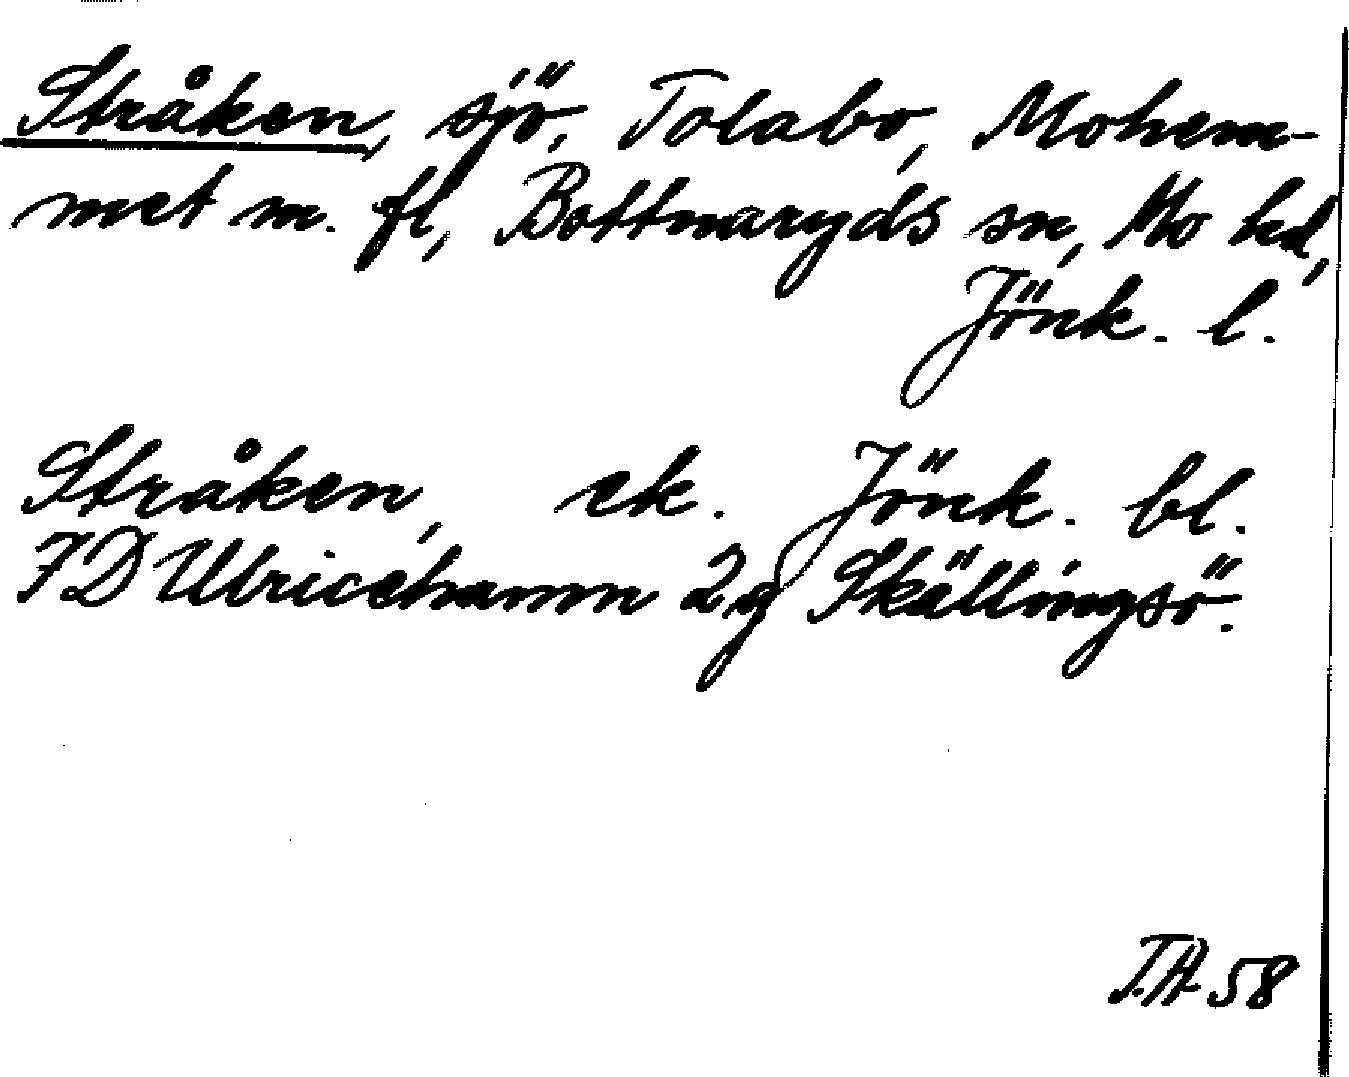 Stråken, sjö, Tolabo, Mohem-
met m. fl, Bottnaryds sn, Mo hd,
Jönk. l.
Stråken, ek. Jönk. bl.
7D Ulricehamn 2g Skällingsö.
T.A. 58